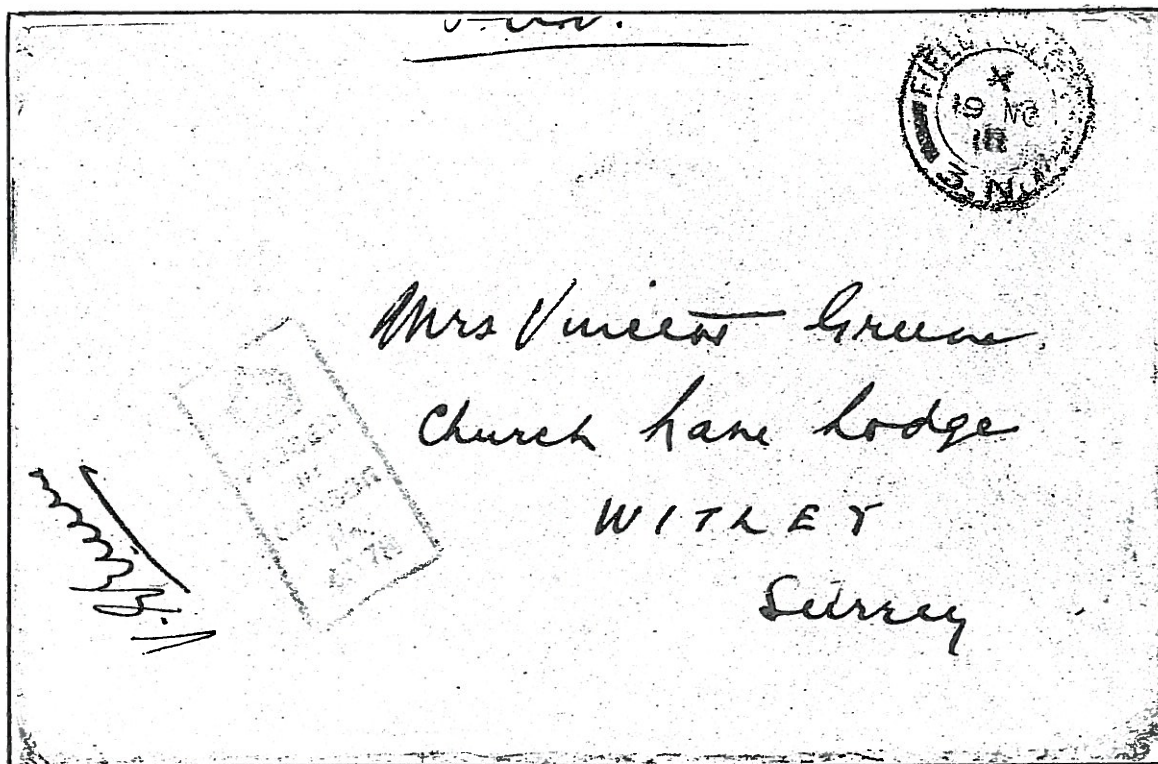 FIELD
19 NO
18
3.N.
Mrs Vincent Greene.
Church Lane Lodge
WITLEY
Surrey